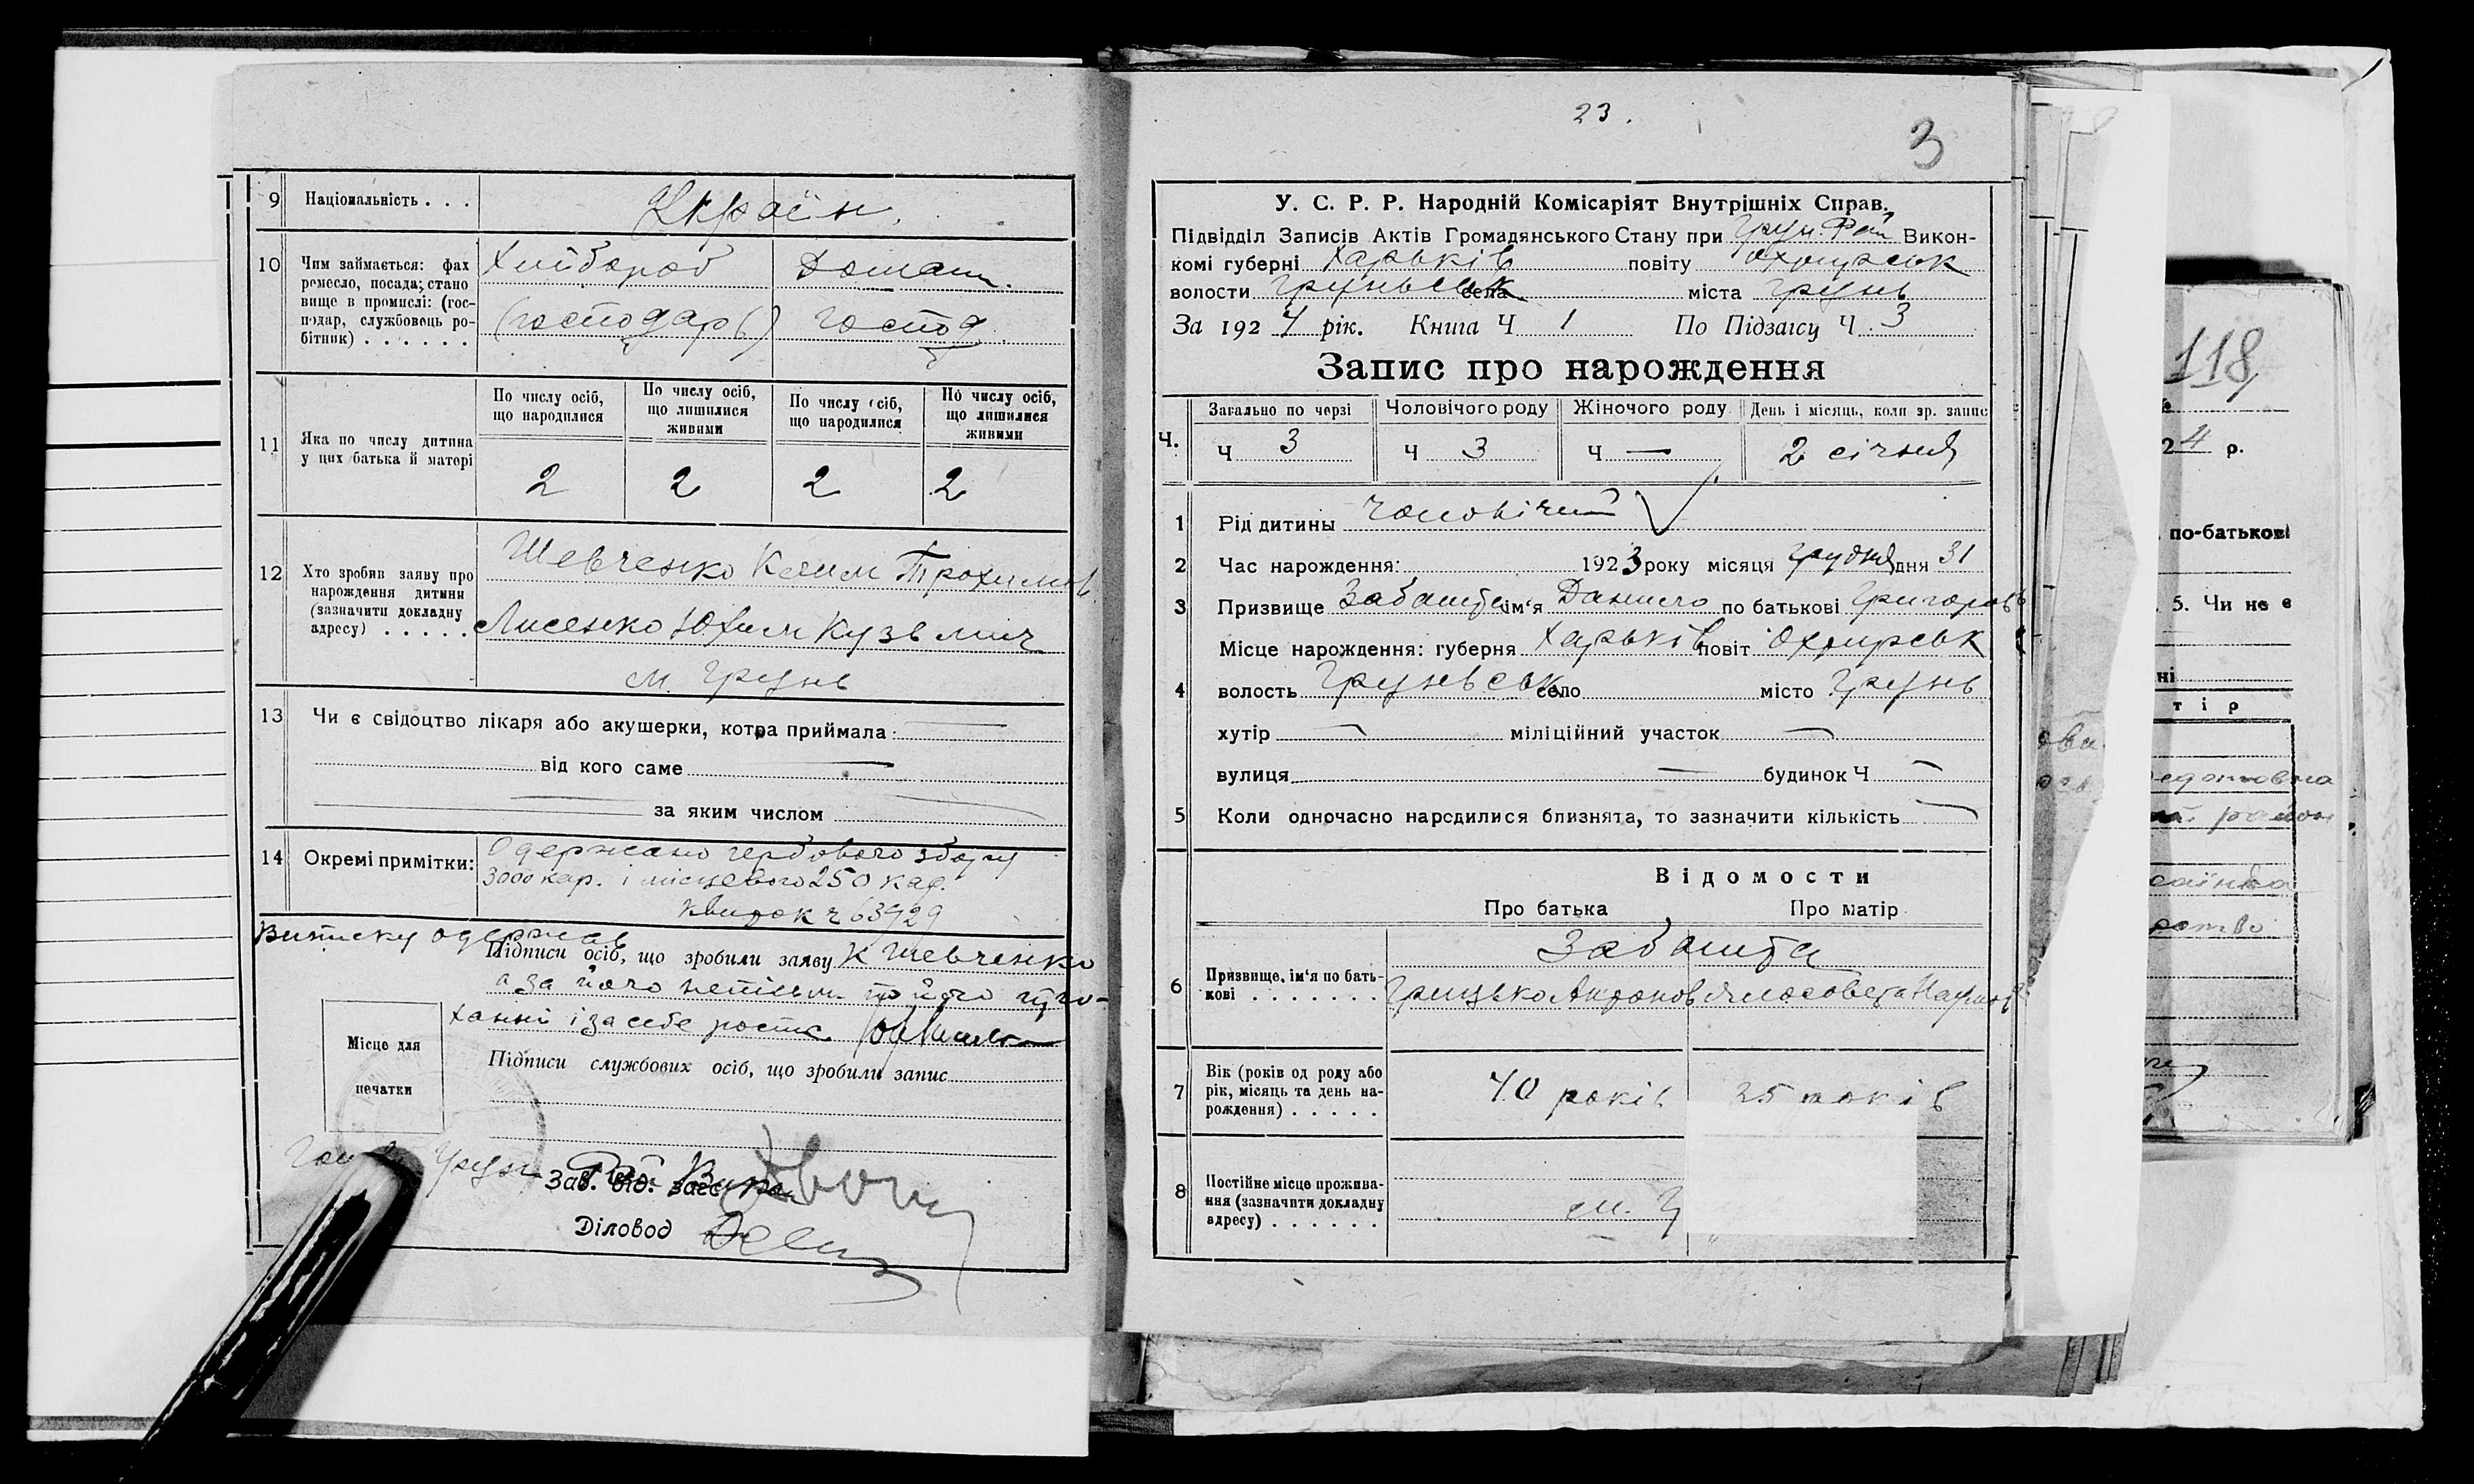 9 Національність . . . Україн.
10 Чим займається: фах Хлібороб Домашн.
ремесло, посада; стано
вище в промислі: (гос-
подар, службовець ро- (господарь) господ
бітник) . . . . . .
По числу осіб, що народилися По числу осіб, що лишилися живими По числу осіб, що народилися По числу осіб, що лишилися живими
11 Яка по числу дитина
у цих батька й матері 2 2 2 2
12 Хто зробив заяву про Шевченко Клим Трохимов
нарождення дитини
(зазначити докладну
адресу) . . . . . Лисенко Юхим Кузьмич
м. Грунь
13 Чи є свідоцтво лікаря або акушерки, котра приймала: —
від кого саме —
— за яким числом
14 Окремі примітки: Одержано гербового збору
3000 кар. і місцевого 250 кар.
квиток ч 63929
Виписку одержав
Підписи осіб, що зробили заяву К Шевченко
а за його неписьм. по його
ханні і за себе розпис.
Місце для
печатки
Підписи службових осіб, що зробили запис
Грун. Рай Вик
Зав. від. загс
Діловод
23.
3
У. С. Р. Р. Народній Комісаріят Внутрішніх Справ.
Підвідділ Записів Актів Громадянського Стану при Грун. Рай Викон-
комі губерні Харьків повіту Охтирськ
волости Груньськ села міста Грунь
За 1924 рік. Книга Ч 1 По Підзагсу Ч. 3
Запис про нарождення
Загально по черзі Чоловічого роду Жіночого роду День і місяць, коли зр. запис
Ч. Ч 3 Ч 3 Ч — 2 січня
1 Рід дитины чоловічий
2 Час нарождення: 1923 року місяця грудня дня 31
3 Призвище Забашта ім'я Данило по батькові Григоров
Місце нарождення: губерня Харьків повіт Охтирськ
4 волость Груневськ село місто Грунь
хутір — міліційний участок —
вулиця — будинок Ч —
5 Коли одночасно народилися близнята, то зазначити кількість —
Відомости
Про батька Про матір
Забашта
6 Призвище, ім'я по бать-
кові . . . . . . . Грицько Антонов Наумов
7 Вік (років од роду або
рік, місяць та день на- 40 років 25 років
рождення) . . . . .
8 Постійне місце прожива-
ння (зазначити докладну
адресу) . . . . . . м. Г
118
24 р.
по-батькові
5. Чи не є
ні
тір
район